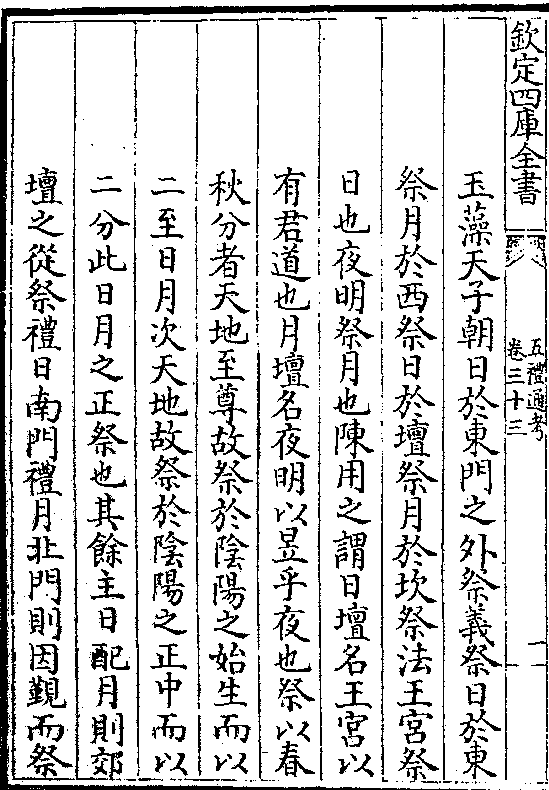 欽定四庫全書
五禮通考
卷三十三
一
玉藻天子朝日於東門之外祭義祭日於東
祭月於西祭日於壇祭月於坎祭法王宮祭
日也夜明祭月也陳用之謂日壇名王宮以
有君道也月壇名夜明以昱乎夜也祭以春
秋分者天地至尊故祭於陰陽之始生而以
二至日月次天地故祭於陰陽之正中而以
二分此日月之正祭也其餘主日配月則郊
壇之從祭禮日南門禮月北門則因覲而祭